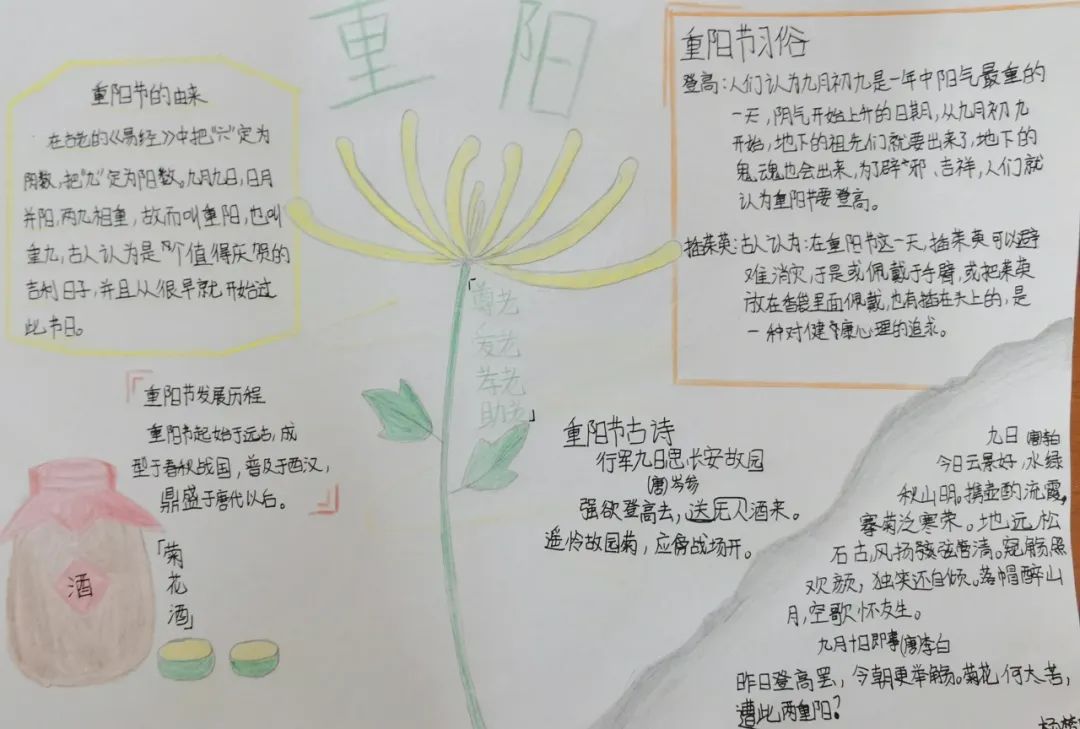 重阳
重阳节的由来
在古老的《易经》中把“六”定为
阴数，把“九”定为阳数。九月九日，日月
并阳，两九相重，故而叫重阳，也叫
重九，古人认为是个值得庆贺的
吉利日子，并且从很早就开始过
此节日。
重阳节习俗
登高：人们认为九月初九是一年中阳气最重的
一天，阴气开始上升的日期，从九月初九
开始，地下的祖先们就要出来了，地下的
鬼魂也会出来，为了辟邪、吉祥，人们就
认为重阳节要登高。
插茱萸：古人认为：在重阳节这一天，插茱萸可以避
难消灾，于是或佩戴于手臂，或把茱萸
放在香袋里面佩戴，也有插在头上的，是
一种对健康心理的追求。
「尊老
爱老
孝老
助老」
重阳节发展历程
重阳节起始于远古，成
型于春秋战国，普及于西汉，
鼎盛于唐代以后。
酒
「菊花酒」
重阳节古诗
行军九日思长安故园
(唐)岑参
强欲登高去，送无人酒来。
遥怜故园菊，应傍战场开。
九日 (唐)李白
今日云景好，水绿
秋山明。携壶酌流霞，
搴菊泛寒荣。地远松
石古，风扬弦管清。窥觞照
欢颜，独笑还自倾。落帽醉山
月，空歌怀友生。
九月十日即事(唐)李白
昨日登高罢，今朝更举觞。菊花何太苦，
遭此两重阳？
杨